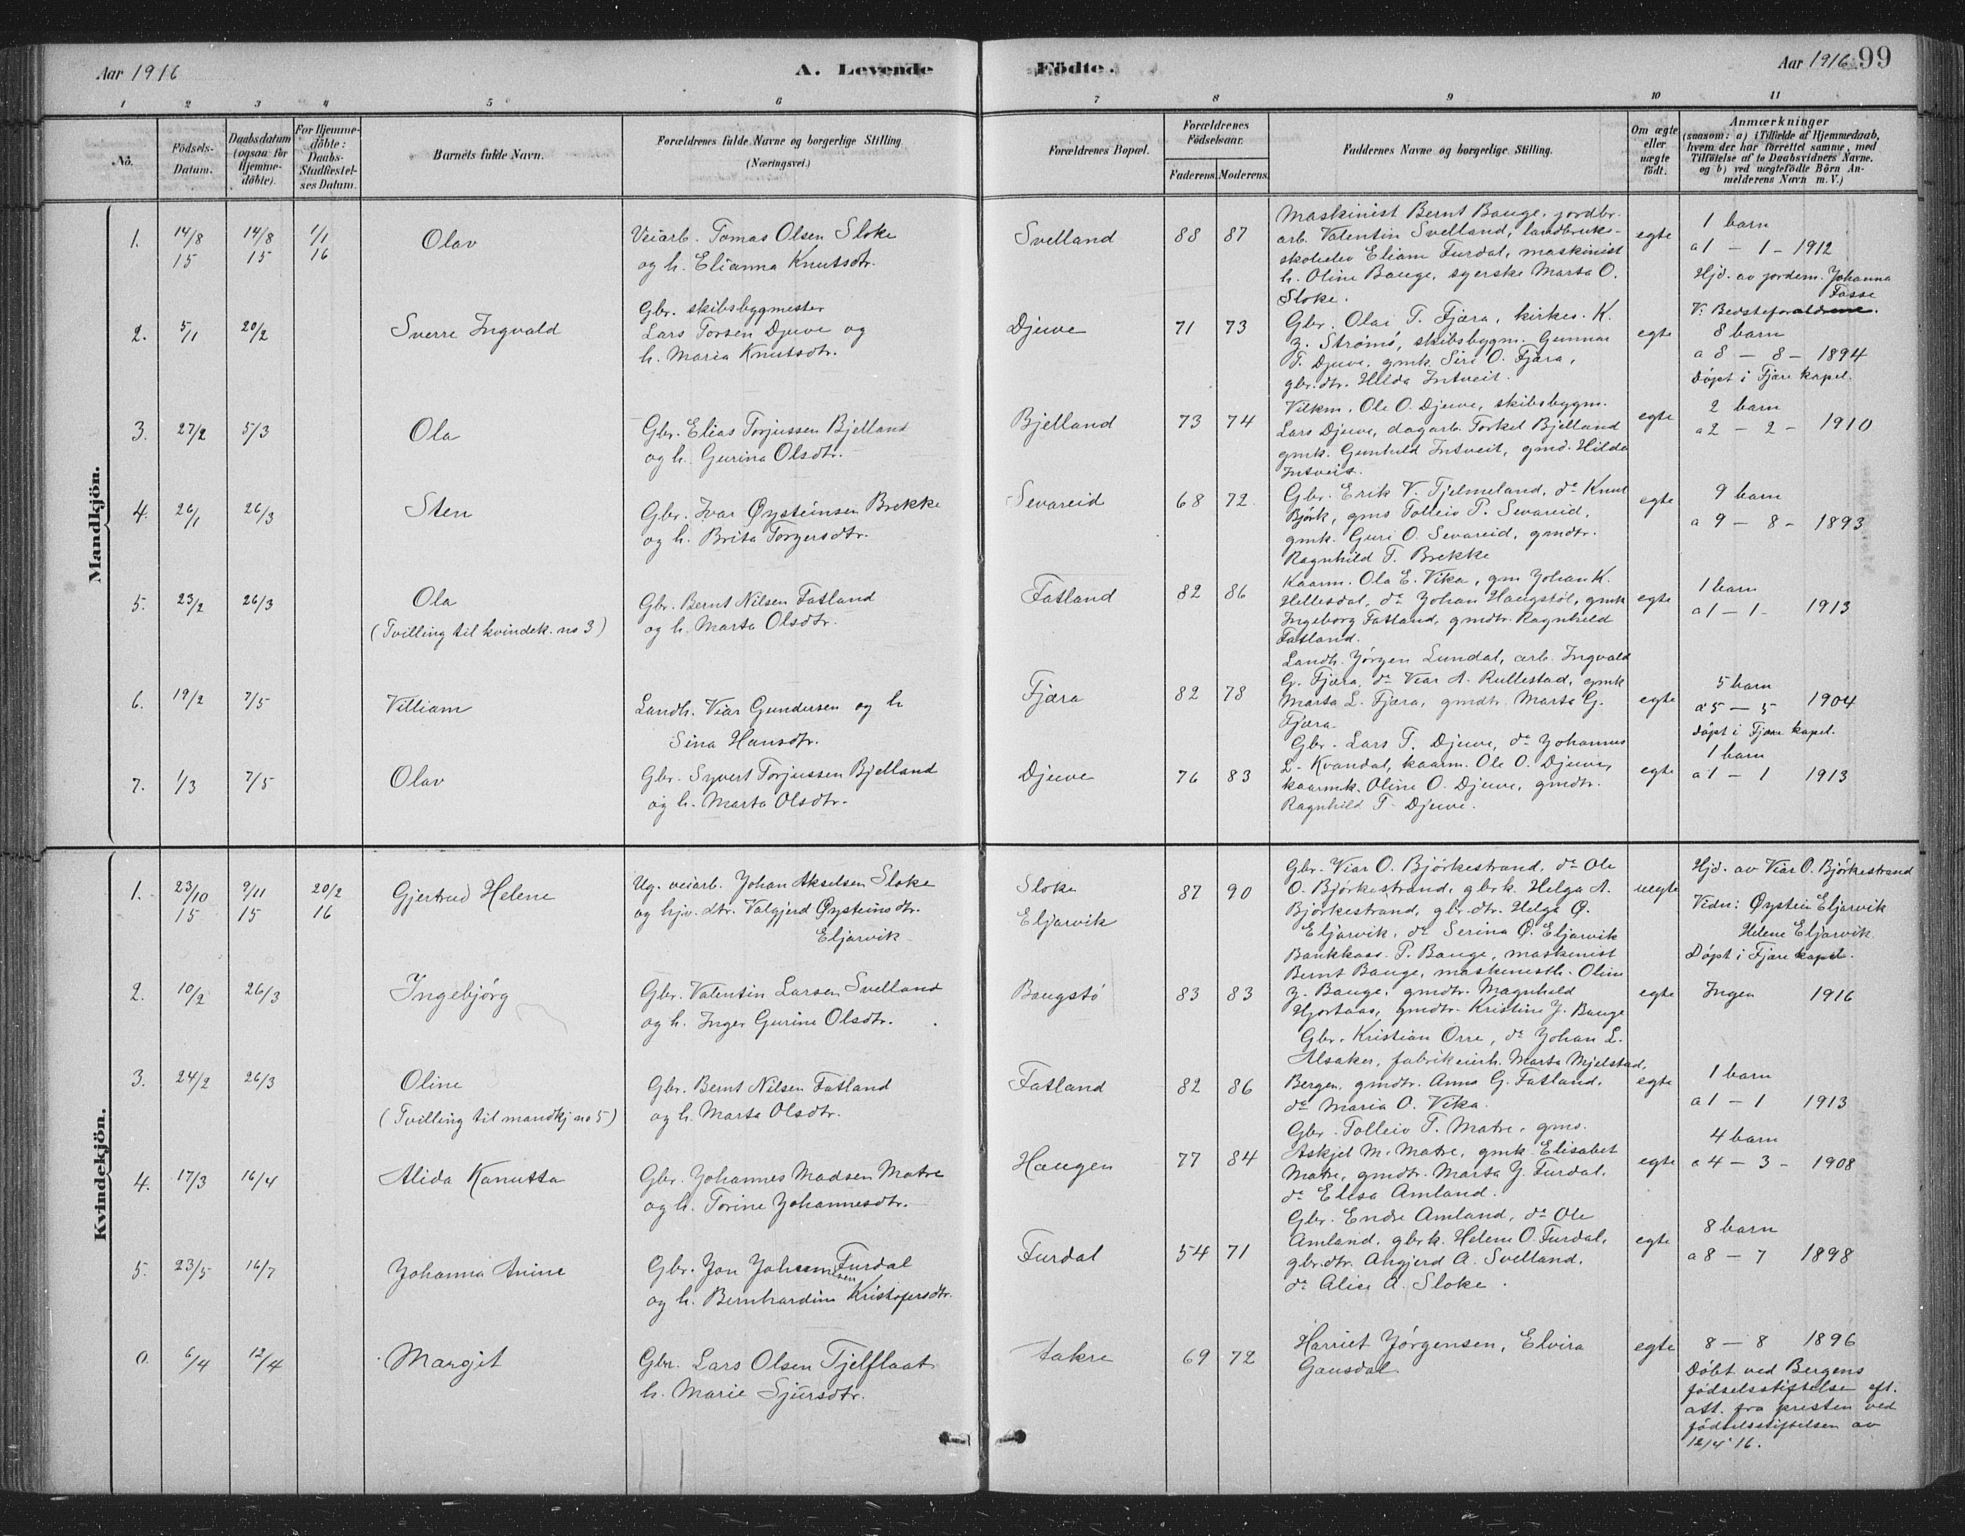 Aar 1916
A. Levende Födte.
Aar 1916. 99
1 2 3 4 5 6 7 8 9 10 11
No.
Födsels-Datum.
Daabsdatum (ogsaa for Hjemme-döbte).
For Hjemme-döbte: Daabs-Stadfæstel-ses Datum.
Barnets fulde Navn.
Forældrenes fulde Navne og borgerlige Stilling
(Næringsvei.)
Forældrenes Bopæl.
Forældrenes Födselsaar.
Faderens. Moderens.
Faddernes Navne og borgerlige Stilling.
Om ægte eller uægte født.
Anmærkninger
(saasom: a) i Tilfælde af Hjemmedaab, hvem der har forrettet samme, med Tilføielse af to Daabsvidners Navne, og b) ved uægtefødte Börn An-melderens Navn m. V.)
Mandkjön.
1. 14/8 15 14/8 15 1/1 16 Olav
Veiarb. Tomas Olsen Sloke
og h. Elianna Knutsdtr.
Svelland 88 87
Maskinist Bernt Bauge, jordbr.
arb. Valentin Svelland, landbruk-
skoleelev Eliam Furdal, maskinist
h. Oline Bauge, syerske Marta O.
Sloke.
egte
1 barn
a 1 - 1 - 1912
Hjd. av jordem. Johanna
Fosse
V: Bedsteforældrene.
2. 5/1 20/2 Sverre Ingvald
Gbr. skibsbygmester
Lars Torsen Djuve og
h. Maria Knutsdtr.
Djuve 71 73
Gbr. Olai T. Fjæra, kirkes. K.
Z. Strømø, skibsbygm. Gunnar
T. Djuve, gmk. Siri O. Fjæra,
gbr.dtr. Hilda Intveit.
egte
8 barn
a 8 - 8 - 1894
Döpt i Fjære kapel.
3. 27/2 5/3 Ola
Gbr. Elias Torjussen Bjelland
og h. Gurina Olsdtr.
Bjelland 73 74
Vilkm. Ole O. Djuve, skibsbygm.
Lars Djuve, dagarb. Torkel Bjelland
gmk. Gunhild Intveit, gmd. Hilda
Intveit.
egte
2 barn
a 2 - 2 - 1910
4. 26/1 26/3 Sten
Gbr. Ivar Øysteinsen Brekke
og h. Brita Torgersdtr.
Sevareid 68 72
Gbr. Erik V. Tjelmeland, do Knut
Björk, gms Tolleiv P. Sevareid,
gmk. Guri O. Sevareid, gmdtr.
Ragnhild T. Brekke
egte
9 barn
a 9 - 8 - 1893
5. 23/2 26/3 Ola
(Tvilling til kvindek. no 3)
Gbr. Bernt Nilsen Fatland
og h. Marta Olsdtr.
Fatland 82 86
Kaarm. Ola E. Vika, gm Johan K.
Hellesdal, do Johan Haugstøl, gmk
Ingeborg Fatland, gmdtr. Ragnhild
Fatland.
egte
1 barn
a 1 - 1 - 1913
6. 19/2 7/5 Villiam
Landh. Viar Gundersen og h
Sina Hansdtr.
Fjæra 82 78
Landh. Jörgen Lundal, arb. Ingvald
G. Fjæra, do Viar A. Rullestad, gmk
Marta L. Fjæra, gmdtr. Marta G.
Fjæra
egte
5 barn
a 5 - 5 1904
Döpt i Fjære kapel.
7. 1/3 7/5 Olav
Gbr. Syvert Torjussen Bjelland
og h. Marta Olsdtr.
Djuve 76 83
Gbr. Lars T. Djuve, do Johannes
L. Kvandal, kaarm. Ole O. Djuve,
kaarmk. Oline O. Djuve, gmdtr.
Ragnhild T. Djuve.
egte
1 barn
a 1 - 1 1913
Kvindekjön.
1. 23/10 15 9/11 15 20/2 16 Gjertrud Helene
Ug. veiarb. Johan Akselsen Sloke
og hjv. dtr. Valgjerd Øysteinsdtr.
Eljarvik
Sloke
Eljarvik
87 90
Gbr. Viar O. Björkestrand, do Ole
O. Björkestrand, gbrk. Helga A.
Björkestrand, gbr.dtr. Helga Ø.
Eljarvik, do Serina Ø. Eljarvik
uegte
Hjd. av Viar O. Björkestrand
Vidn: Øystein Eljarvik
Helene Eljarvik.
Döpt i Fjære kapel.
2. 10/2 26/3 Ingebjörg
Gbr. Valentin Larsen Svelland
og h. Inger Gurine Olsdtr.
Baugstö 83 83
Bankkass. P. Bauge, maskinist
Bernt Bauge, maskinisth. Oline
Z. Bauge, gmdtr. Magnhild
Hjortaas, gmdtr. Kristine J. Bauge
egte
Ingen 1916
3. 24/2 26/3 Oline
(Tvilling til mandkj no 5)
Gbr. Bernt Nilsen Fatland
og h. Marta Olsdtr.
Fatland 82 86
Gbr. Kristian Orre, do Johan L.
Alsaker, fabrikeierh. Marta Mjelstad,
Bergen, gmdtr. Anna G. Fatland,
do Maria O. Vika.
egte
1 barn
a 1 - 1 1913
4. 17/3 16/4 Alida Kanutta
Gbr. Johannes Madsen Matre
og h. Torine Johannesdtr.
Haugen 77 84
Gbr. Tolleiv T. Matre, gms.
Askjel M. Matre, gmk. Elisabet
Matre, gmdtr. Marta J. Furdal,
do Elisa Amland.
egte
4 barn
a 4 - 3 - 1908
5. 23/5 16/7 Johanna Anine
Gbr. Jon Johannessen Furdal
og h. Bernhardine Kristofersdtr.
Furdal 54 71
Gbr. Endre Amland, do Ole
Amland, gbrk. Helene O. Furdal,
gbr.dtr. Angjerd A. Svelland,
do Alice A. Sloke.
egte
8 barn
a 8 - 7 1898
0. 6/4 12/4 Margit
Gbr. Lars Olsen Tjelflaat
h. Marie Sjursdtr.
Aakre 69 72
Harriet Jörgensen, Elvira
Gausdal
egte
8 - 8 1896
Döbt ved Bergens
födselsstiftelse eft.
att. fra presten ved
födselsstiftelsen av
12/4 16.